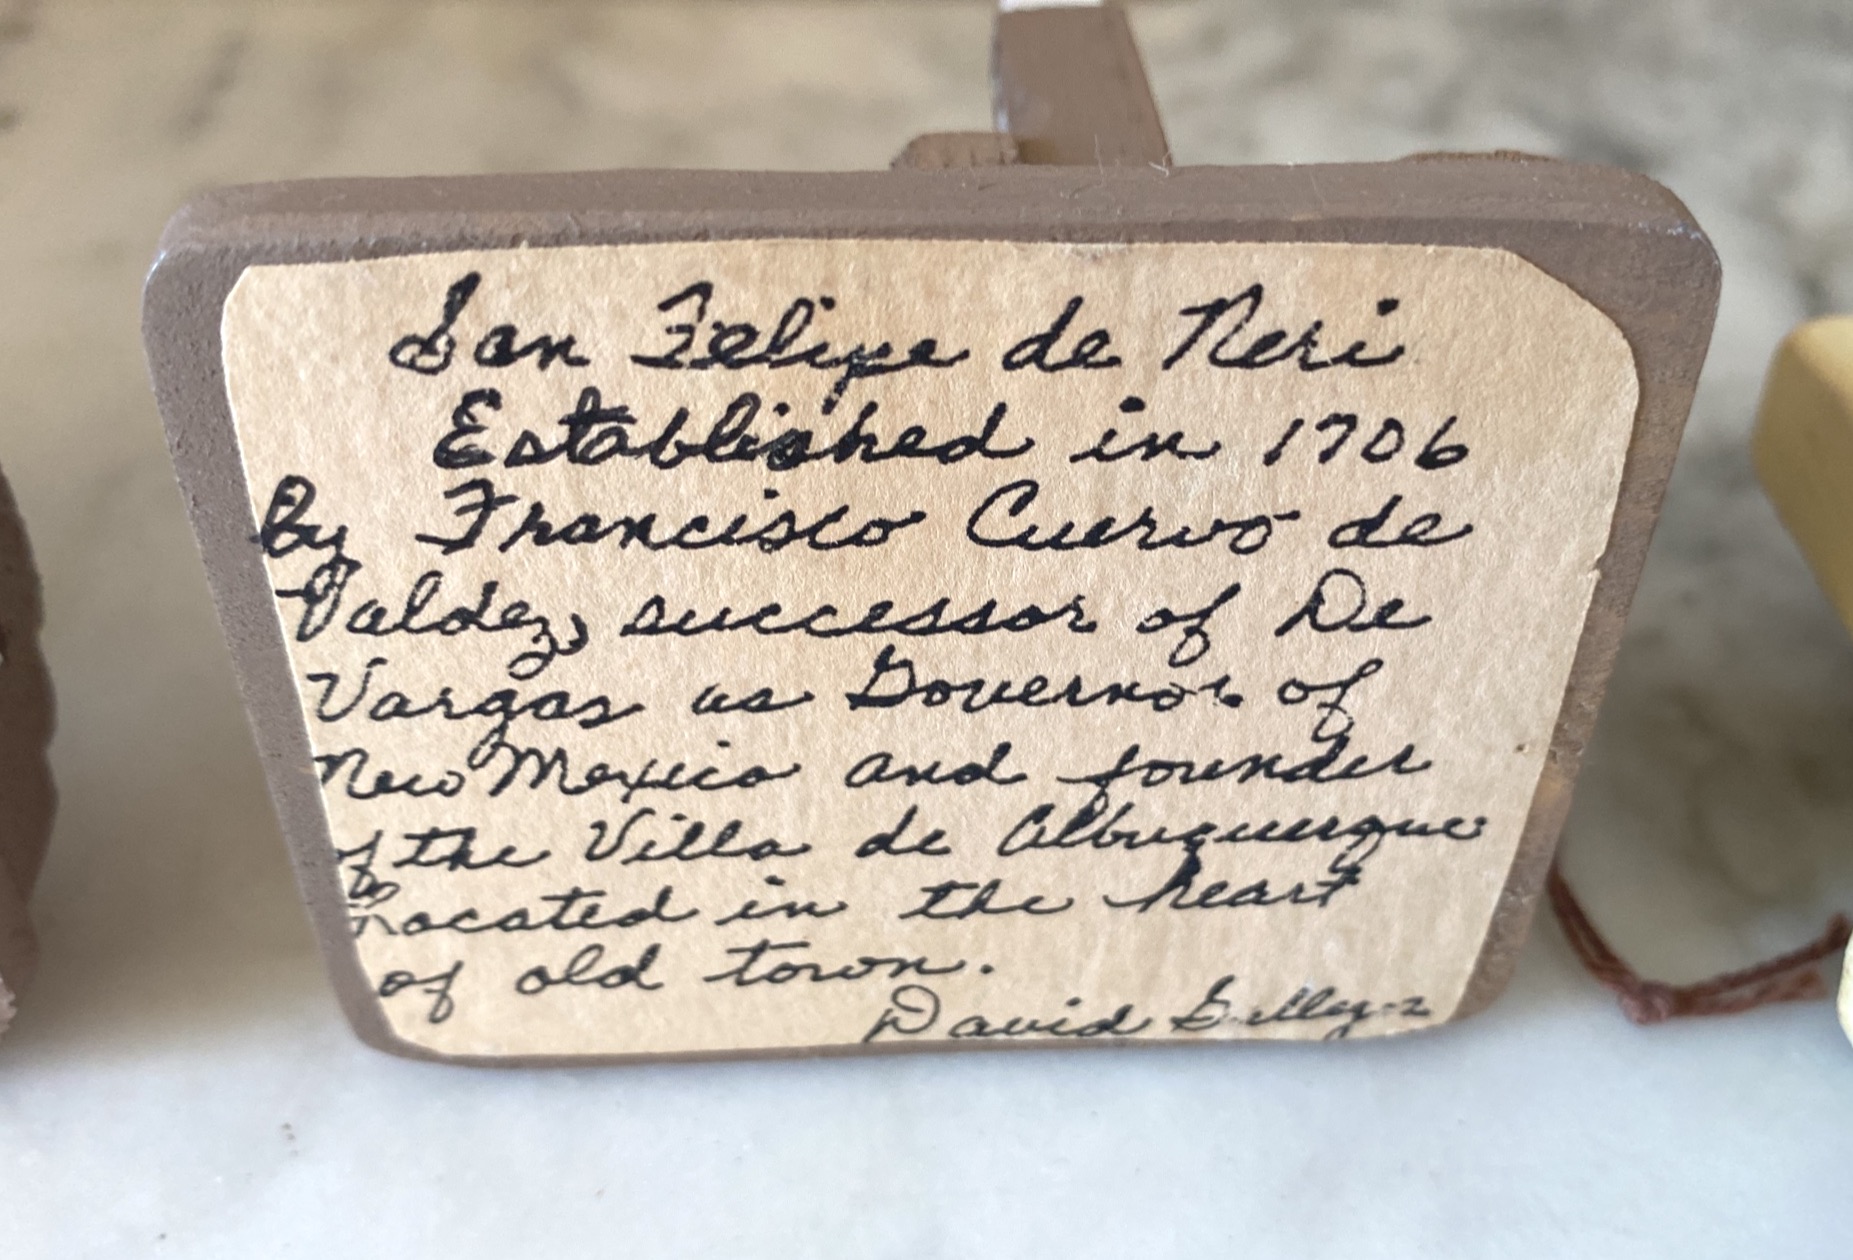 San Felipe de Neri
Established in 1706
By Francisco Cuervo de
Valdez, successor of De
Vargas as Governor of
New Mexico and founder
of the Villa de Albuquerque
Located in the heart
of old town.
David